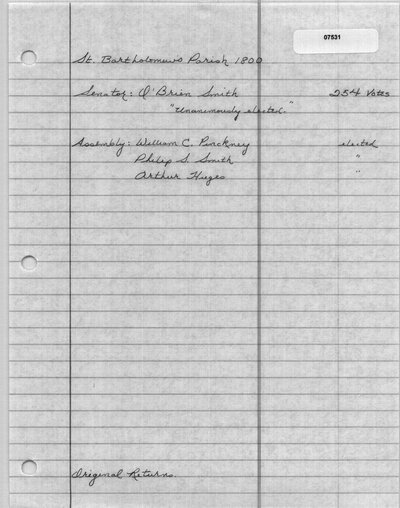 07531
St. Bartholomews Parish 1800
Senator: O'Brien Smith 254 Votes
"Unanimously elected."
Assembly: William C. Pinckney elected
Philip S. Smith "
Arthur Huges "
Original Returns.